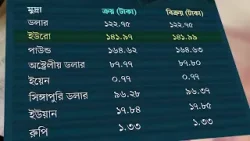 মুদ্রা ক্রয় (টাকা) বিক্রয় (টাকা)
ডলার ১২২.৭৫ ১২২.৭৫
ইউরো ১৪১.৯৭ ১৪১.৯৯
পাউন্ড ১৬৪.৬২ ১৬৪.৬৩
অস্ট্রেলীয় ডলার ৮৭.৭৭ ৮৭.৮০
ইয়েন ০.৭৭ ০.৭৭
সিঙ্গাপুরি ডলার ৯৬.২৮ ৯৬.৩৭
ইউয়ান ১৭.৮৪ ১৭.৮৫
রুপি ১.৩৩ ১.৩৩